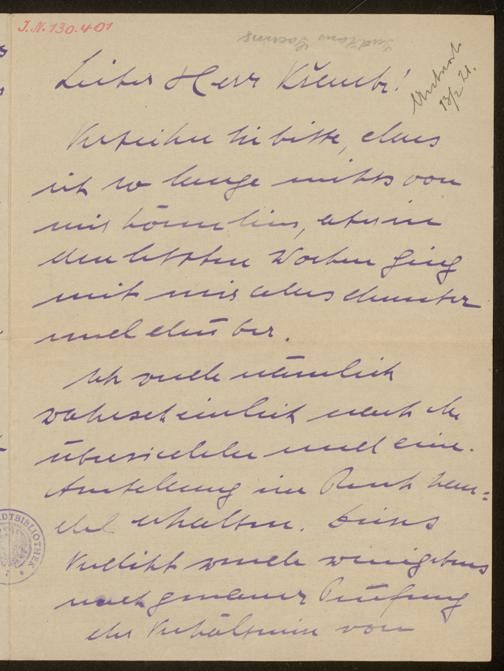 J.N. 130.401
13/2 21.
Lieber Herr Křenek!
Verzeihen Sie bitte, dass
ich so lange nichts von
mir hören liess, aber in
den letzten Wochen ging
mit mir alles drunter
und drüber.
Ich werde nämlich
wahrscheinlich nach
übersiedeln und eine
Anstellung im
erhalten. Dieses
wurde wenigstens
nach genauer Prüfung
der Verhältnisse von
STADTBIBLIOTHEK